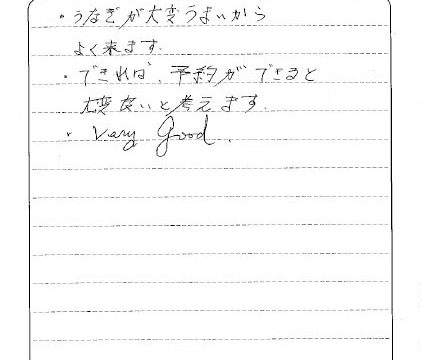 ・うなぎが大変うまいから
よく来ます.
・できれば、予約ができると
大変良いと考えます.
・Very good.